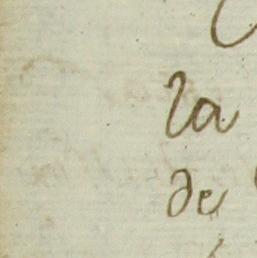 la
de